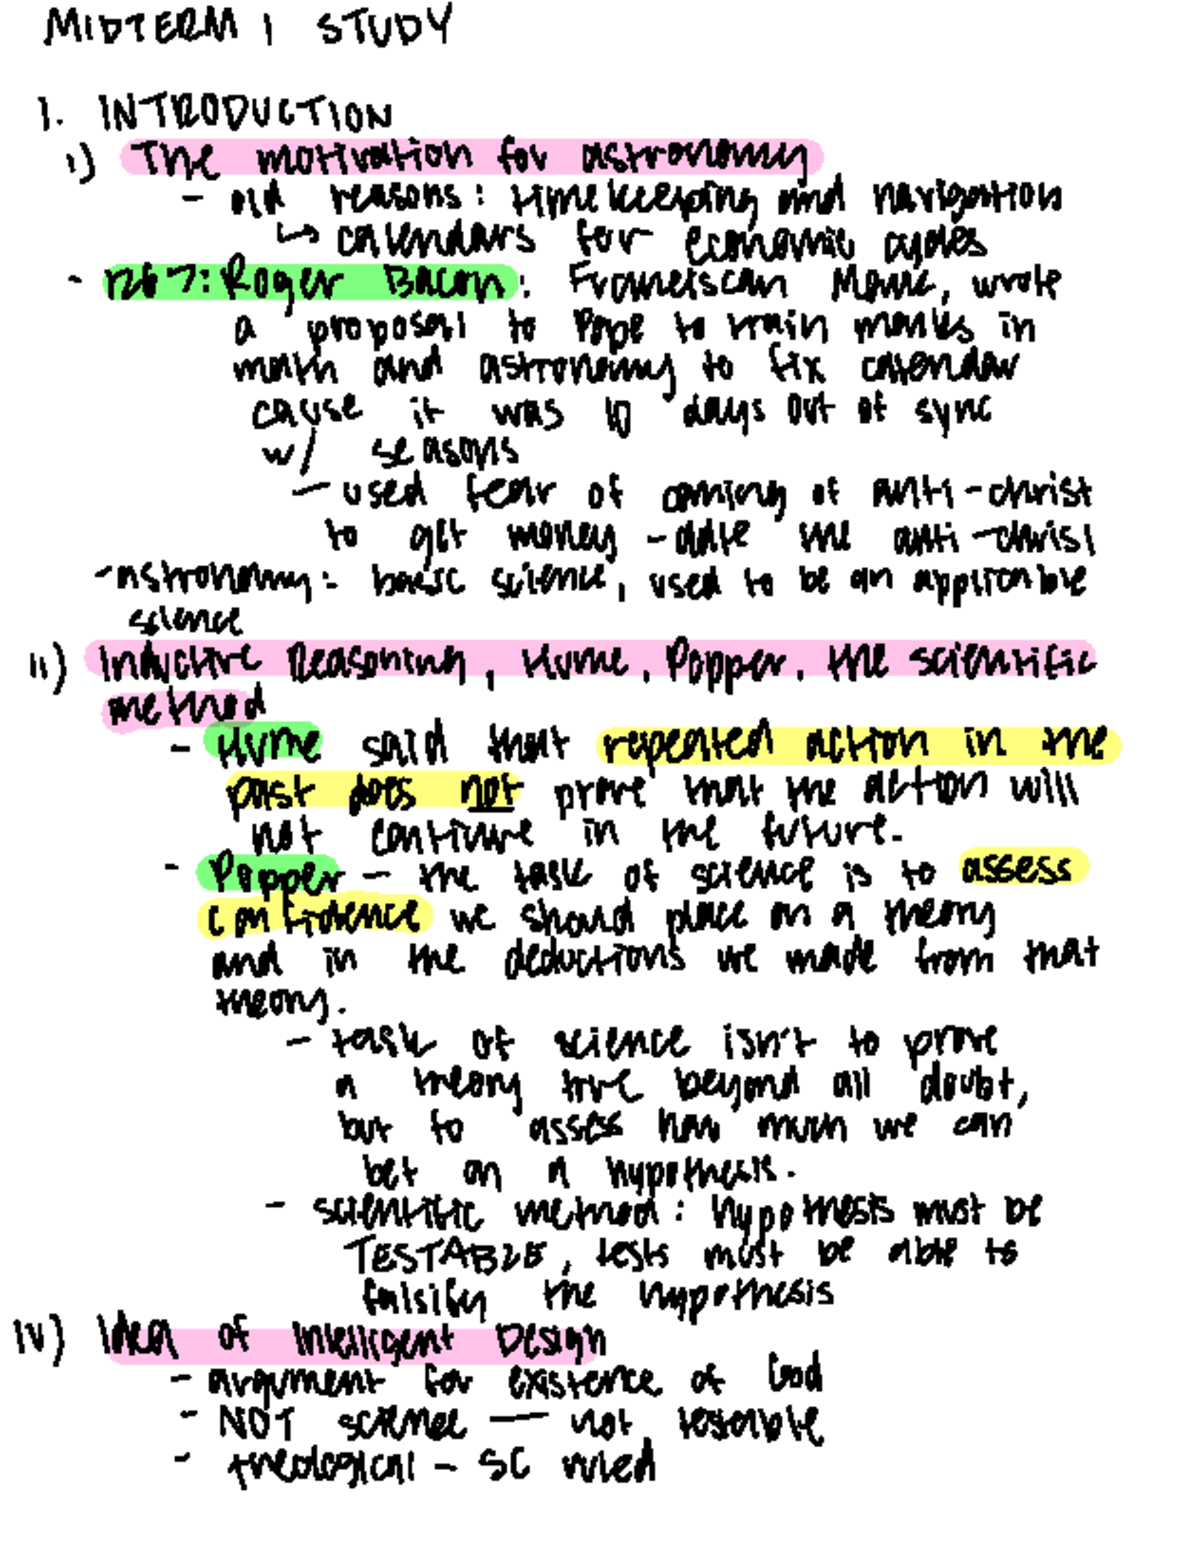 MIDTERM 1 STUDY
1. INTRODUCTION
i) The motivation for astronomy
- old reasons: timekeeping and navigation
↳ calendars for economic cycles
- 1267: Roger Bacon: Franciscan Monk, wrote
a proposal to Pope to train monks in
math and astronomy to fix calendar
cause it was 10 days out of sync
w/ seasons
- used fear of coming of anti-christ
to get money - date the anti-christ
- astronomy: basic science, used to be an applicable
science
ii) Inductive Reasoning, Hume, Popper, the scientific
method
- Hume said that repeated action in the
past does not prove that the action will
not continue in the future.
- Popper - the task of science is to assess
confidence we should place on a theory
and in the deductions we made from that
theory.
- task of science isn't to prove
a theory true beyond all doubt,
but to assess how much we can
bet on a hypothesis.
- scientific method: hypothesis must be
TESTABLE, tests must be able to
falsify the hypothesis
iv) Idea of Intelligent Design
- argument for existence of God
- NOT science — not testable
- theological - SC ruled